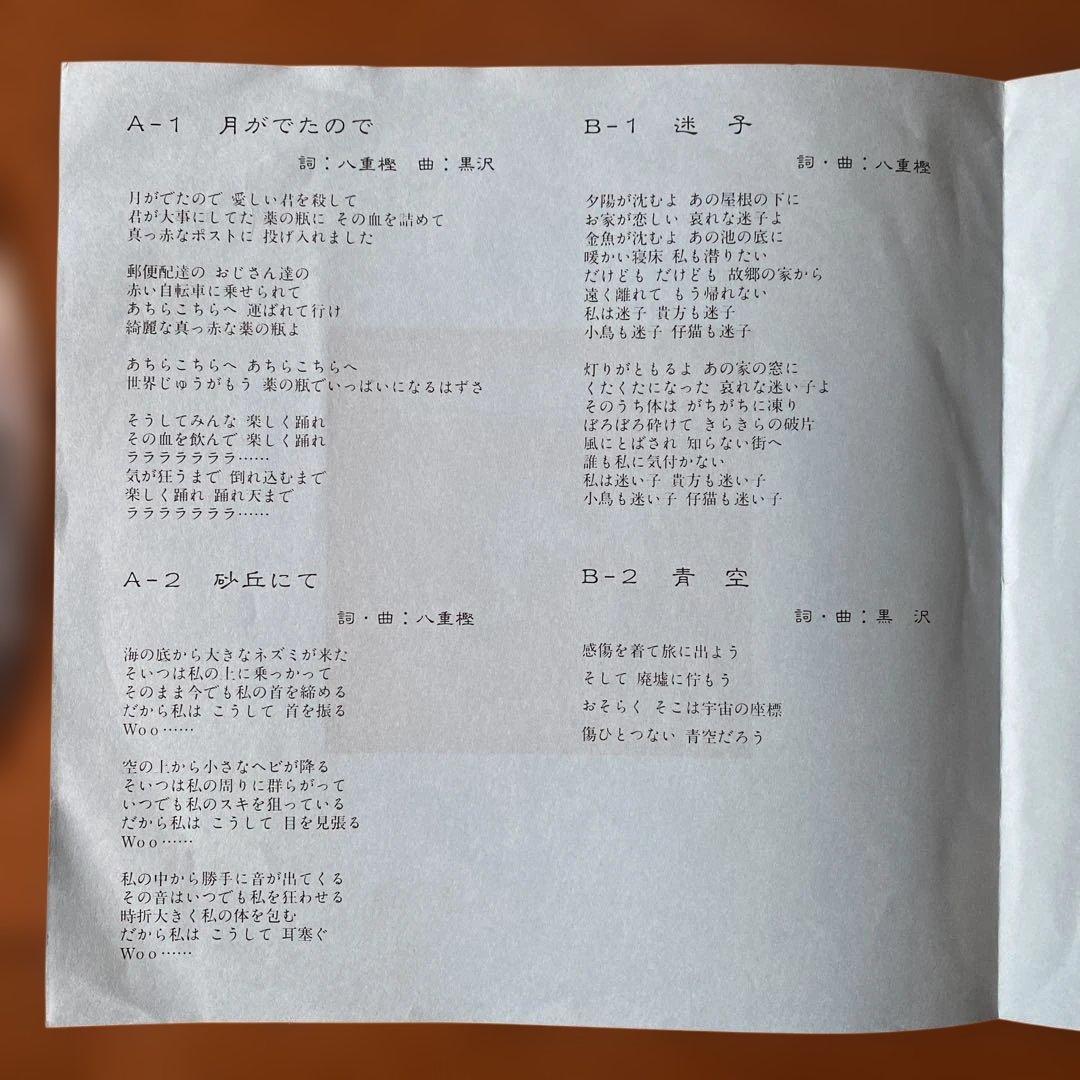 A-1 月がでたので
詞：八重樫 曲：黒沢
月がでたので 愛しい君を殺して
君が大事にしてた 薬の瓶に その血を詰めて
真っ赤なポストに 投げ入れました
郵便配達の おじさん達の
赤い自転車に乗せられて
あちらこちらへ 運ばれて行け
綺麗な真っ赤な薬の瓶よ
あちらこちらへ あちらこちらへ
世界じゅうがもう 薬の瓶でいっぱいになるはずさ
そうしてみんな 楽しく踊れ
その血を飲んで 楽しく踊れ
ラララララララ……
気が狂うまで 倒れ込むまで
楽しく踊れ 踊れ天まで
ラララララララ……
A-2 砂丘にて
詞・曲：八重樫
海の底から大きなネズミが来た
そいつは私の上に乗っかって
そのまま今でも私の首を締める
だから私は こうして 首を振る
Woo……
空の上から小さなヘビが降る
そいつは私の周りに群らがって
いつでも私のスキを狙っている
だから私は こうして 目を見張る
Woo……
私の中から勝手に音が出てくる
その音はいつでも私を狂わせる
時折大きく私の体を包む
だから私は こうして 耳塞ぐ
Woo……
B-1 迷 子
詞・曲：八重樫
夕陽が沈むよ あの屋根の下に
お家が恋しい 哀れな迷子よ
金魚が沈むよ あの池の底に
暖かい寝床 私も潜りたい
だけども だけども 故郷の家から
遠く離れて もう帰れない
私は迷子 貴方も迷子
小鳥も迷子 仔猫も迷子
灯りがともるよ あの家の窓に
くたくたになった 哀れな迷い子よ
そのうち体は がちがちに凍り
ぼろぼろ砕けて きらきらの破片
風にとばされ 知らない街へ
誰も私に気付かない
私は迷い子 貴方も迷い子
小鳥も迷い子 仔猫も迷い子
B-2 青 空
詞・曲：黒 沢
感傷を着て旅に出よう
そして 廃墟に佇もう
おそらく そこは宇宙の座標
傷ひとつない 青空だろう